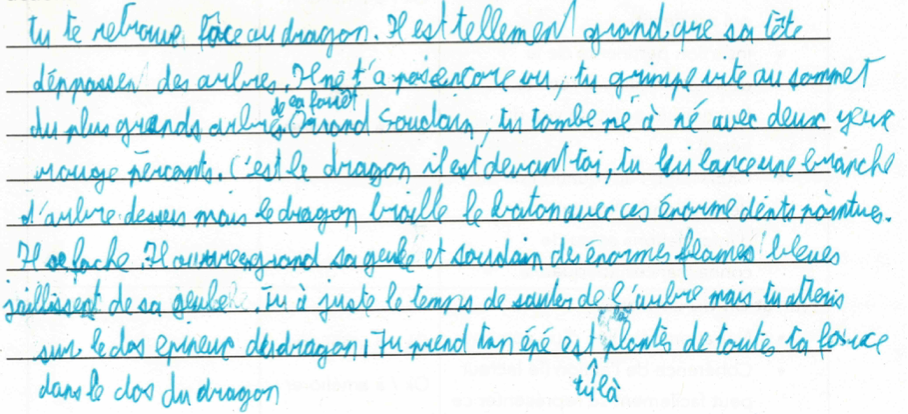 tu te retrouve face au dragon. Il est tellement grand que sa tête
déppassen des arbres. Il ne t'a pas encore vu, tu grimpe vite au sommet
de la forêt
du plus grands arbre Quand Soudain, tu tombe né à né avec deux yeux
rouge percants. C'est le dragon il est devant toi, tu lui lance une branche
d'arbre dessus mais le dragon broille le baton avec ces énorme dents pointues.
Il se fache. Il ouvre grand sa geule et soudain des énormes flames bleues
jaillissent de sa geule. Tu à juste le temps de sauter de l'arbre mais tu atteris
sur le dos epineux du dragon, Tu prend ton épé est plantes de toutes ta force
dans le dos du dragon
tu là